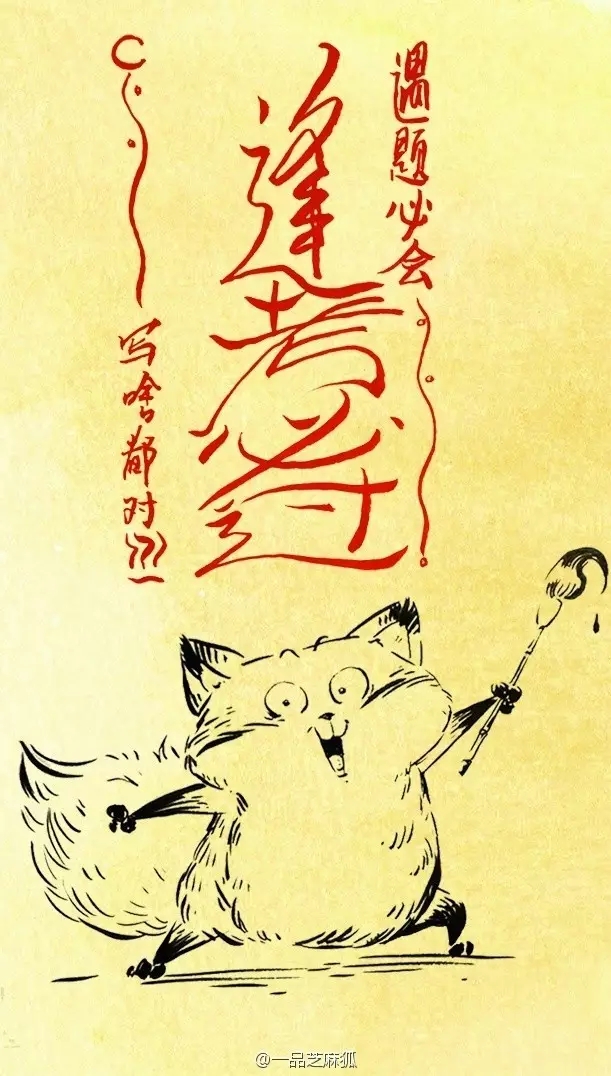 遇题必会
逢考必过
写啥都对!!!
@一品芝麻狐